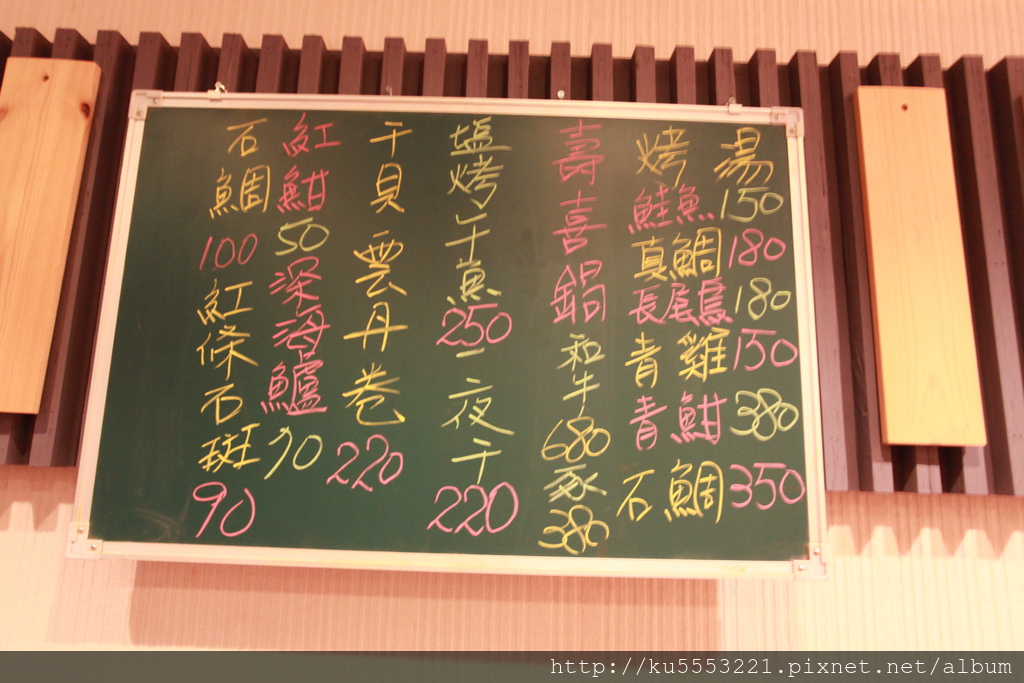 烤 湯
鮭魚 150
真鯛 180
長尾鳥 180
青雞 150
青魽 380
石鯛 350
壽喜鍋 和牛 680 豕 380
塩烤 干魚 250 一夜干 220
干貝雲丹卷 220
紅魽 50 深海鱸 90
石鯛 100 紅條石斑 90
http://ku5553221.pixnet.net/album